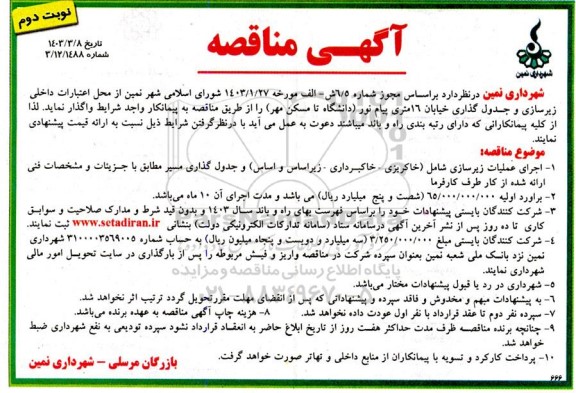 نوبت دوم
آگهی مناقصه
تاریخ ۱۴۰۳/۳/۸
شماره ۳/۱۲/۱۴۸۸
شهرداری نمین
شهرداری نمین درنظردارد براساس مجوز شماره ۶/۵ش- الف مورخه ۱۴۰۳/۱/۲۷ شورای اسلامی شهر نمین از محل اعتبارات داخلی
زیرسازی و جدول گذاری خیابان ۱۶متری پیام نور (دانشگاه تا مسکن مهر) را از طریق مناقصه به پیمانکار واجد شرایط واگذار نماید. لذا
از کلیه پیمانکارانی که دارای رتبه بندی راه و باند میباشند دعوت به عمل می آید با درنظرگرفتن شرایط ذیل نسبت به ارائه قیمت پیشنهادی
نمایند.
موضوع مناقصه:
۱- اجرای عملیات زیرسازی شامل (خاکریزی - خاکبرداری - زیراساس و اساس) و جدول گذاری مسیر مطابق با جزئیات و مشخصات فنی
ارائه شده از کار طرف کارفرما
۲- براورد اولیه ۶۵/۰۰۰/۰۰۰/۰۰۰ (شصت و پنج میلیارد ریال) می باشد و مدت اجرای آن ۱۰ ماه می‌باشد.
۳- شرکت کنندگان بایستی پیشنهادات خود را براساس فهرست بهای راه و باند سال ۱۴۰۳ و بدون قید شرط و مدارک صلاحیت و سوابق
کاری تا ده روز پس از نشر آخرین آگهی درسامانه ستاد (سامانه تدارکات الکترونیکی دولت) بنشانی www.setadiran.ir ثبت نمایند.
۴- شرکت کنندگان بایستی مبلغ ۳/۲۵۰/۰۰۰/۰۰۰ (سه میلیارد و دویست و پنجاه میلیون ریال) به حساب شماره ۳۱۰۰۰۰۳۵۶۹۰۰۵ شهرداری
نمین نزد بانک ملی شعبه نمین بعنوان سپرده شرکت در مناقصه واریز و فیش مربوطه را پس از بارگذاری در سایت تحویل امور مالی
شهرداری نمایند.
۵- شهرداری در رد یا قبول پیشنهادات مختار می‌باشد.
۶- به پیشنهادات مبهم و مخدوش و فاقد سپرده و پیشنهاداتی که پس از انقضای مهلت مقررتحویل گردد ترتیب اثر نخواهد شد.
۷- سپرده نفر دوم تا عقد قرارداد با نفر اول عودت داده نخواهد شد. ۸- هزینه چاپ آگهی مناقصه به عهده برنده می‌باشد.
۹- چنانچه برنده مناقصه ظرف مدت حداکثر هفت روز از تاریخ ابلاغ حاضر به انعقاد قرارداد نشود سپرده تودیعی به نفع شهرداری ضبط
خواهد شد.
۱۰- پرداخت کارکرد و تسویه با پیمانکاران از منابع داخلی و تهاتر صورت خواهد گرفت.
بازرگان مرسلی - شهرداری نمین
۶۶۶
پایگاه اطلاع رسانی مناقصه و مزایده